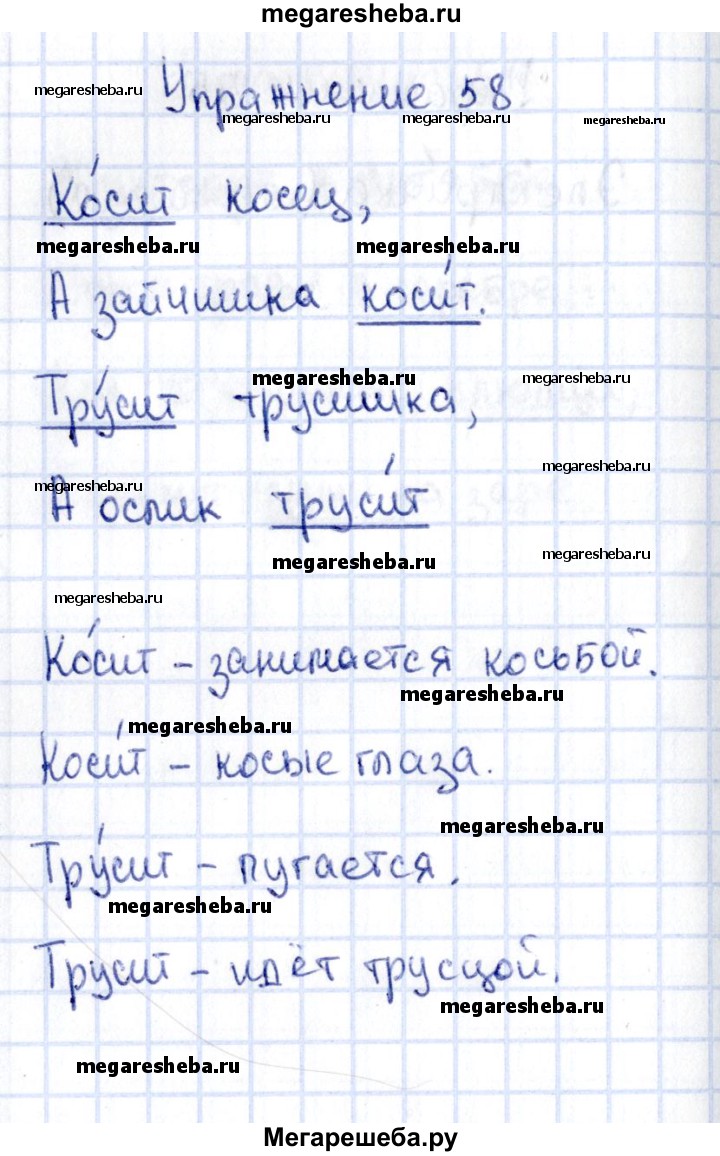 megaresheba.ru
Упражнение 58
megaresheba.ru
megaresheba.ru
megaresheba.ru
megaresheba.ru
Ко́сит косец,
megaresheba.ru
megaresheba.ru
А зайчишка коси́т.
megaresheba.ru
megaresheba.ru
Тру́сит трусишка,
megaresheba.ru
megaresheba.ru
А ослик труси́т
megaresheba.ru
megaresheba.ru
megaresheba.ru
Ко́сит – занимается косьбой.
megaresheba.ru
megaresheba.ru
Коси́т – косые глаза.
megaresheba.ru
Тру́сит – пугается.
megaresheba.ru
Трусит – идёт трусцой.
megaresheba.ru
megaresheba.ru
Мегарешеба.ру